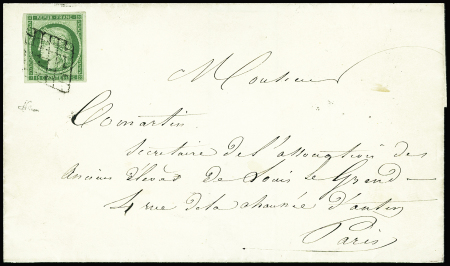 REPUB. FRANC.
Monsieur
Comartin
Secrétaire de l'association des
Anciens élèves de Louis le Grand
4 rue de la chaussée d'antin
Paris